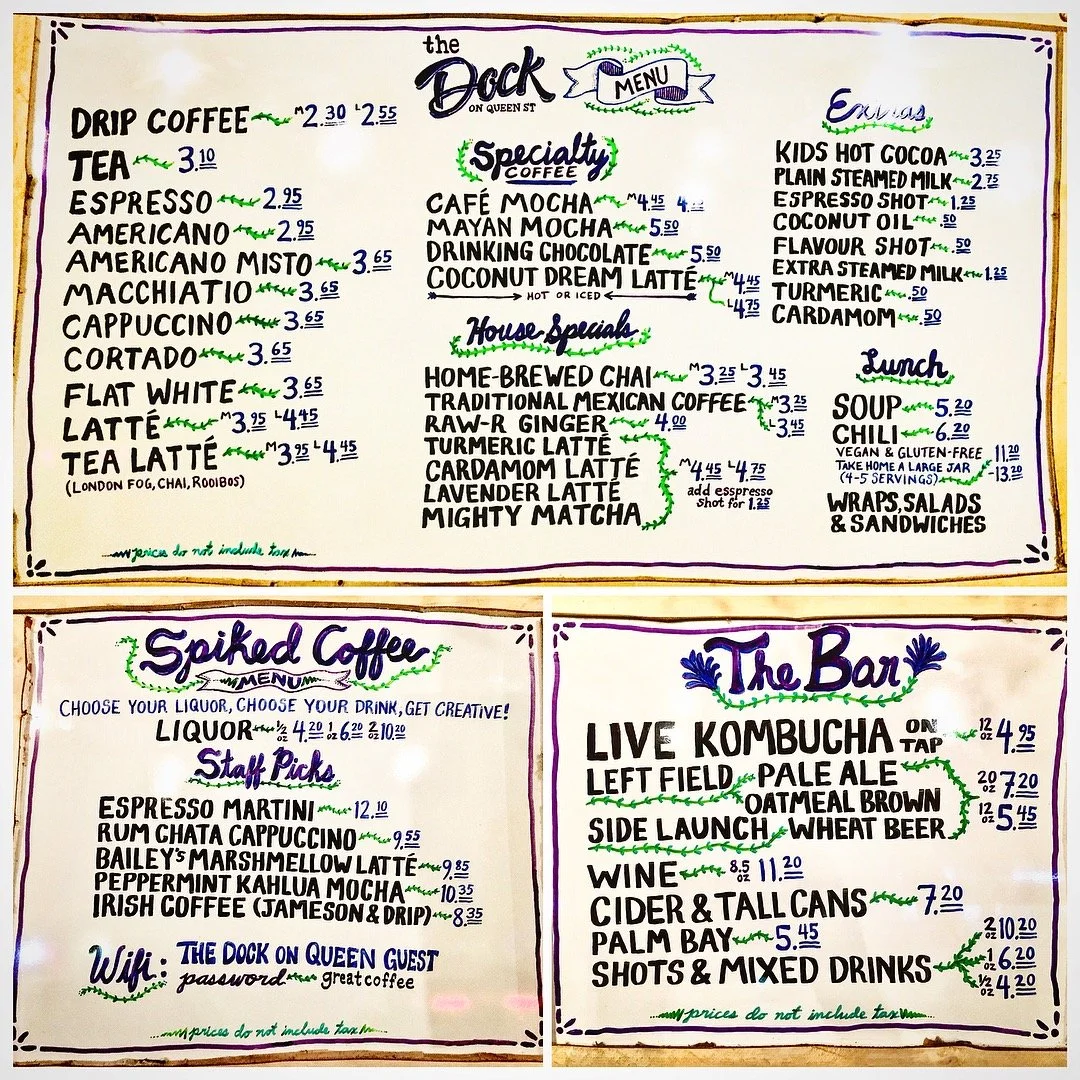 the
Dock
ON QUEEN ST
MENU
DRIP COFFEE M2.30 L2.55
TEA 3.10
ESPRESSO 2.95
AMERICANO 2.95
AMERICANO MISTO 3.65
MACCHIATIO 3.65
CAPPUCCINO 3.65
CORTADO 3.65
FLAT WHITE 3.65
LATTÉ M3.95 L4.45
TEA LATTÉ M3.95 L4.45
(LONDON FOG, CHAI, ROOIBOS)
prices do not include tax
Specialty
COFFEE
CAFÉ MOCHA M4.45
MAYAN MOCHA 5.50
DRINKING CHOCOLATE 5.50
COCONUT DREAM LATTÉ M4.45
HOT OR ICED L4.75
House Specials
HOME-BREWED CHAI M3.25 L3.45
TRADITIONAL MEXICAN COFFEE M3.25
L3.45
RAW-R GINGER 4.00
TURMERIC LATTÉ
CARDAMOM LATTÉ M4.45 L4.75
LAVENDER LATTÉ add esspresso
MIGHTY MATCHA shot for 1.25
Extras
KIDS HOT COCOA 3.25
PLAIN STEAMED MILK 2.75
ESPRESSO SHOT 1.25
COCONUT OIL .50
FLAVOUR SHOT .50
EXTRA STEAMED MILK 1.25
TURMERIC .50
CARDAMOM .50
Lunch
SOUP 5.20
CHILI 6.20
VEGAN & GLUTEN-FREE 11.20
TAKE HOME A LARGE JAR
(4-5 SERVINGS) -13.20
WRAPS, SALADS
& SANDWICHES
Spiked Coffee
MENU
CHOOSE YOUR LIQUOR, CHOOSE YOUR DRINK, GET CREATIVE!
LIQUOR 1/2 oz 4.20 1 oz 6.20 2 oz 10.20
Staff Picks
ESPRESSO MARTINI 12.10
RUM CHATA CAPPUCCINO 9.55
BAILEY'S MARSHMELLOW LATTÉ 9.85
PEPPERMINT KAHLUA MOCHA 10.35
IRISH COFFEE (JAMESON & DRIP) 8.35
Wifi: THE DOCK ON QUEEN GUEST
password greatcoffee
prices do not include tax
The Bar
LIVE KOMBUCHA ON TAP 12 oz 4.95
LEFT FIELD PALE ALE 20 oz 7.20
OATMEAL BROWN 12 oz 5.45
SIDE LAUNCH WHEAT BEER
WINE 8.5 oz 11.20
CIDER & TALL CANS 7.20
PALM BAY 5.45
SHOTS & MIXED DRINKS 2 oz 10.20
1 oz 6.20
1/2 oz 4.20
prices do not include tax